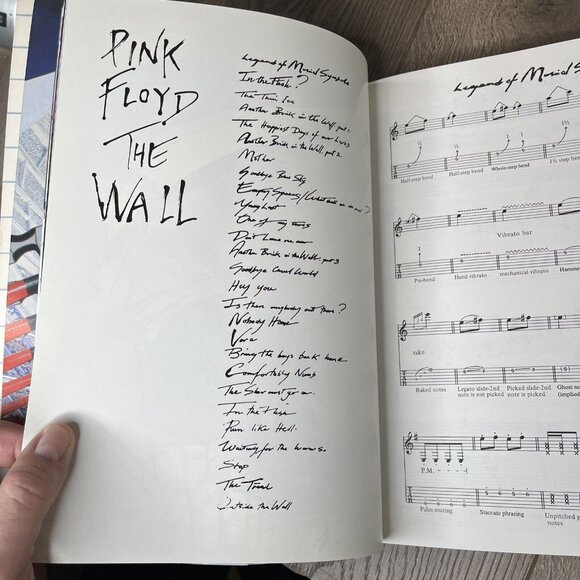 PINK
FLOYD
THE
WALL
Legend of Musical Symbols
In the Flesh?
The Thin Ice
Another Brick in the Wall, part 1
The Happiest Days of our Lives
Another Brick in the Wall, part 2
Mother
Goodbye Blue Sky
Empty Spaces/What shall we do now?
Young Lust
One of my turns
Don't leave me now
Another Brick in the Wall, part 3
Goodbye Cruel World
Hey you
Is there anybody out there?
Nobody Home
Vera
Bring the boys back home
Comfortably Numb
The Show must go on
In the Flesh
Run like Hell
Waiting for the Worms
Stop
The Trial
Outside the Wall
Legend of Musical S
1/2 1/2 1 1½
Half-step bend Half-step bend Whole-step bend 1½ step bend
Vibrato bar
Pre-bend Hand vibrato mechanical vibrato Hamme
rake
Raked notes Legato slide-2nd note is not picked Picked slide-2nd note is picked Ghost no (implied
P.M.
5 6 6 5
Palm muting Staccato phrasing Unpitched p notes